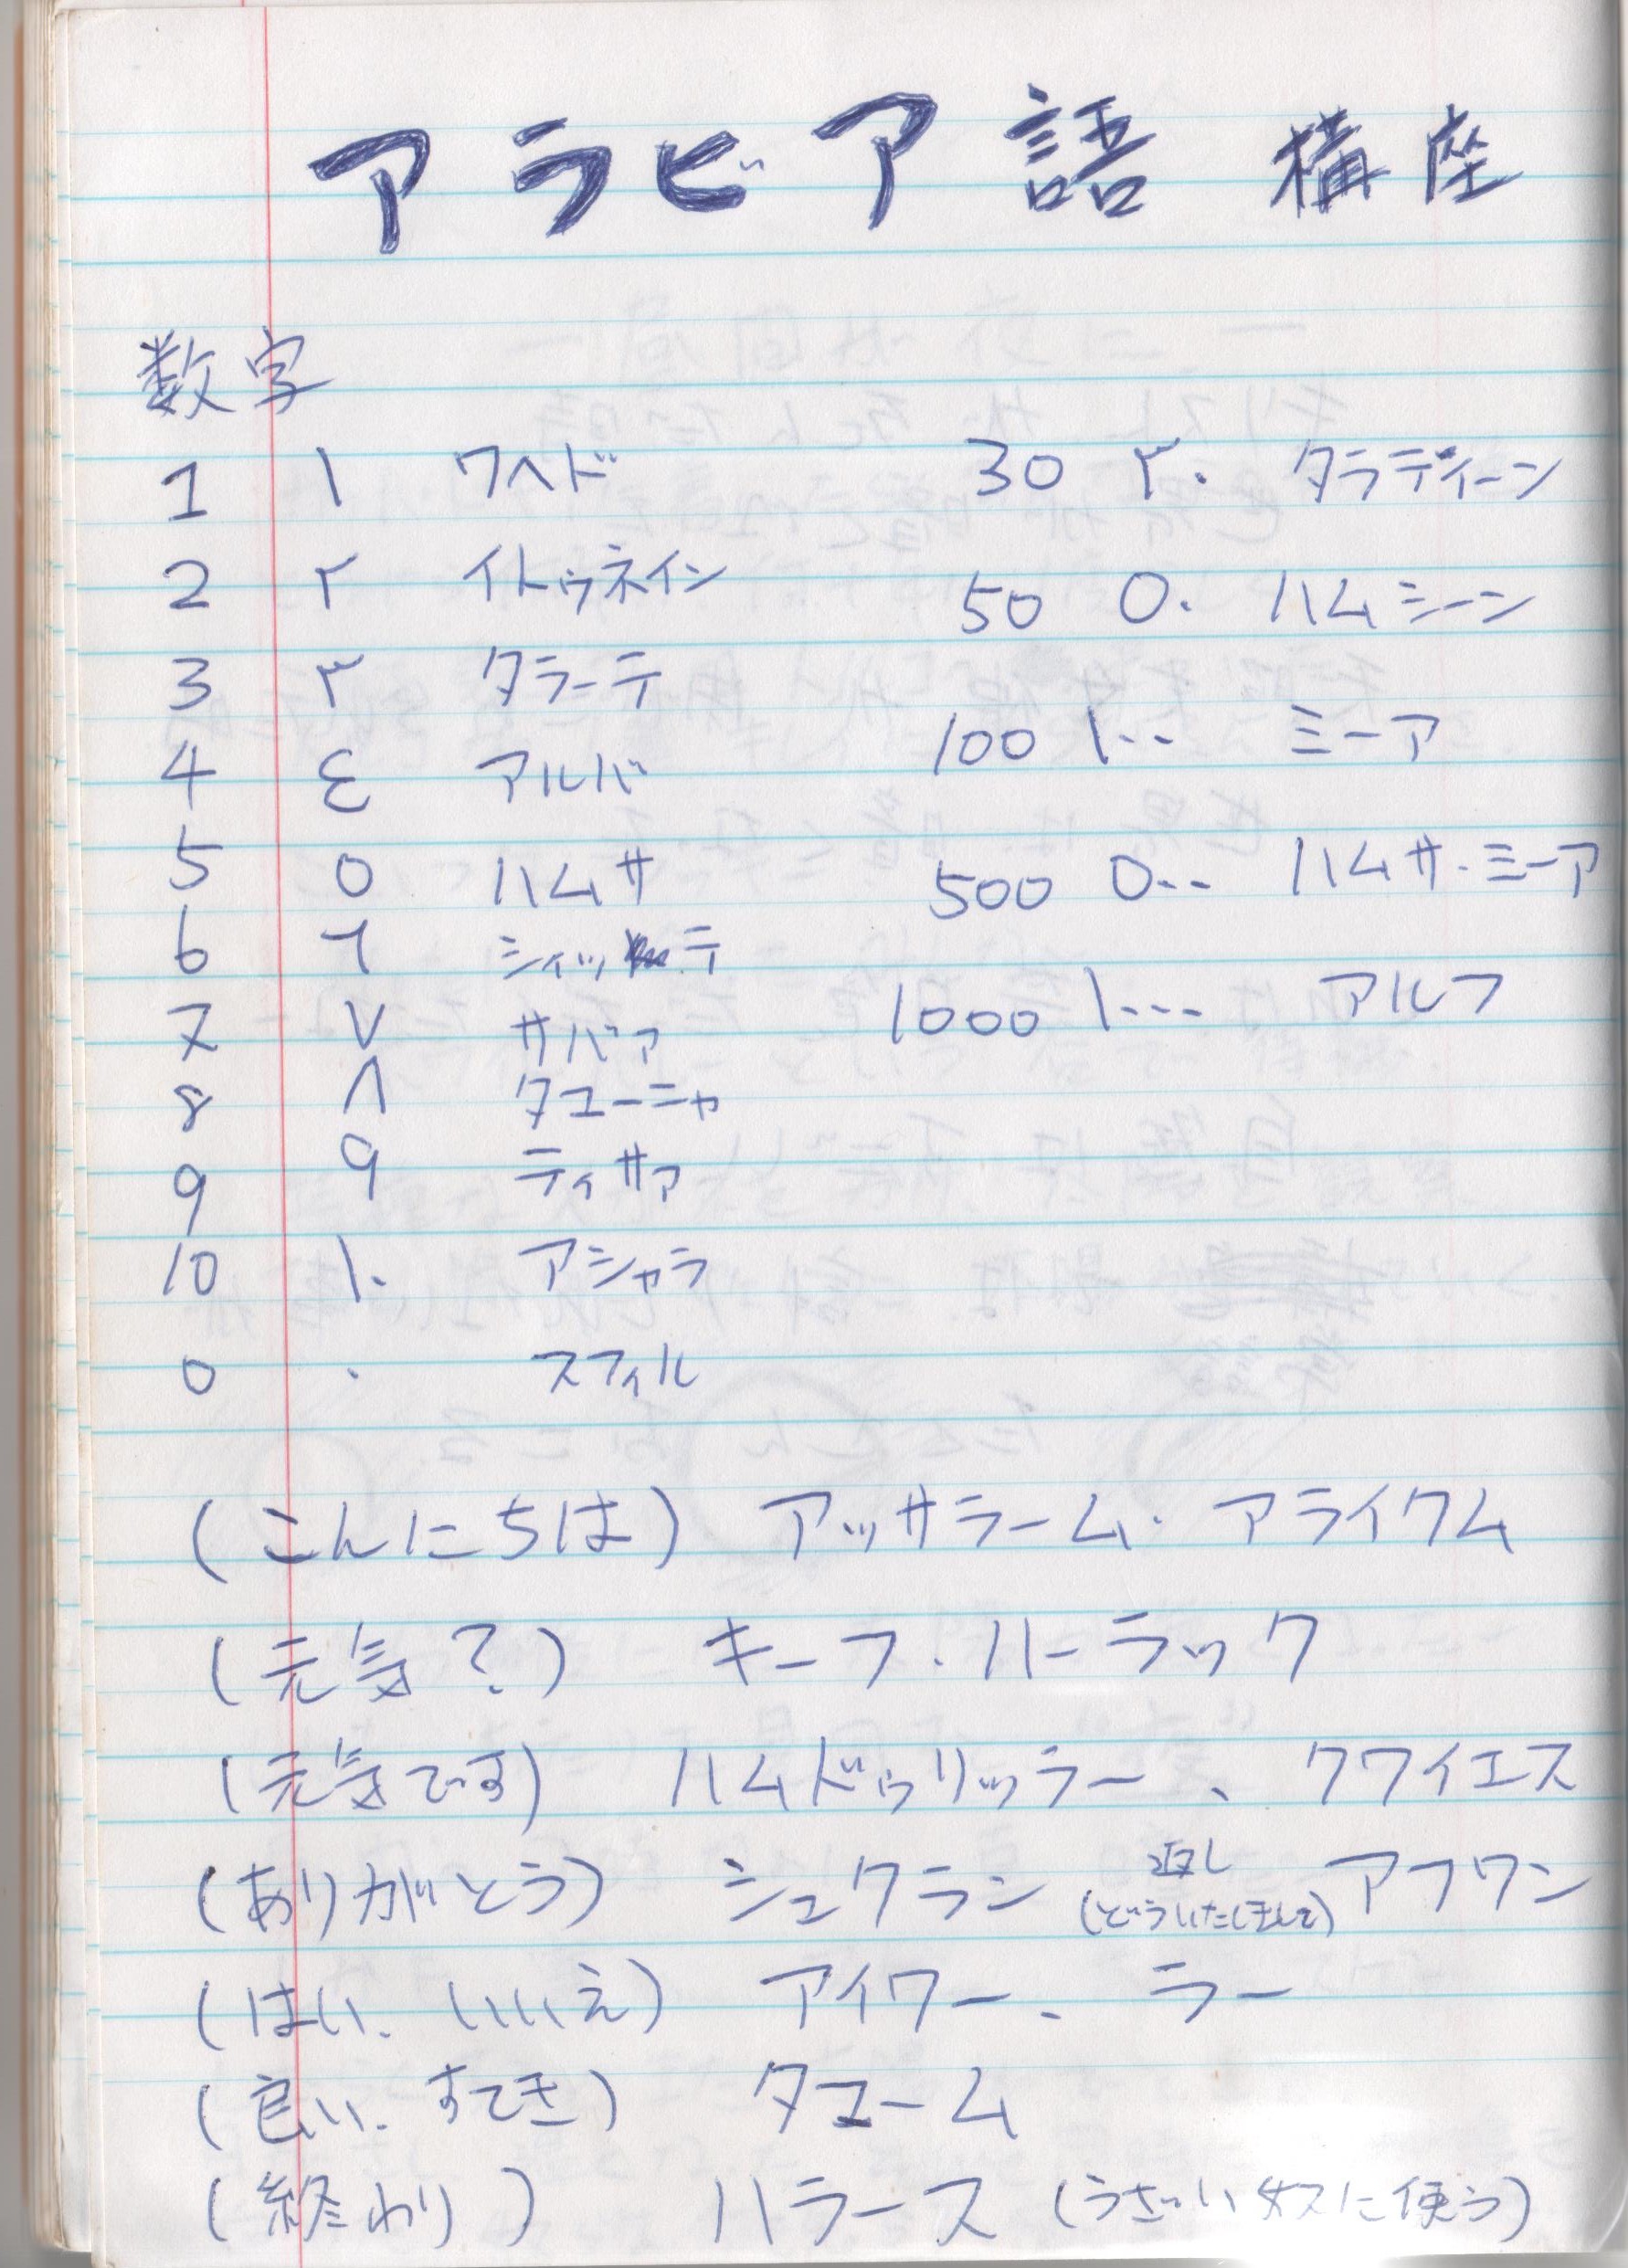 アラビア語 構座
数字
1 ١ ワヘド
2 ٢ イトゥネイン
3 ٣ タラーテ
4 ٤ アルバ
5 ٥ ハムサ
6 ٦ シィッテ
7 ٧ サバァ
8 ٨ タユーニャ
9 ٩ ティサァ
10 ١٠ アシャラ
0 ٠ スフィル
30 ٣٠ タラティーン
50 ٥٠ ハムシーン
100 ١٠٠ ミーア
500 ٥٠٠ ハムサ・ミーア
1000 ١٠٠٠ アルフ
(こんにちは) アッサラーム・アライクム
(元気?) キーフ・ハーラック
(元気です) ハムドゥリッラー、クワイエス
(ありがとう) シュクラン 返し(どういたしまして) アフワン
(はい、いいえ) アイワー、ラー
(良い、すてき) タユーム
(終わり) ハラース (うざい奴に使う)